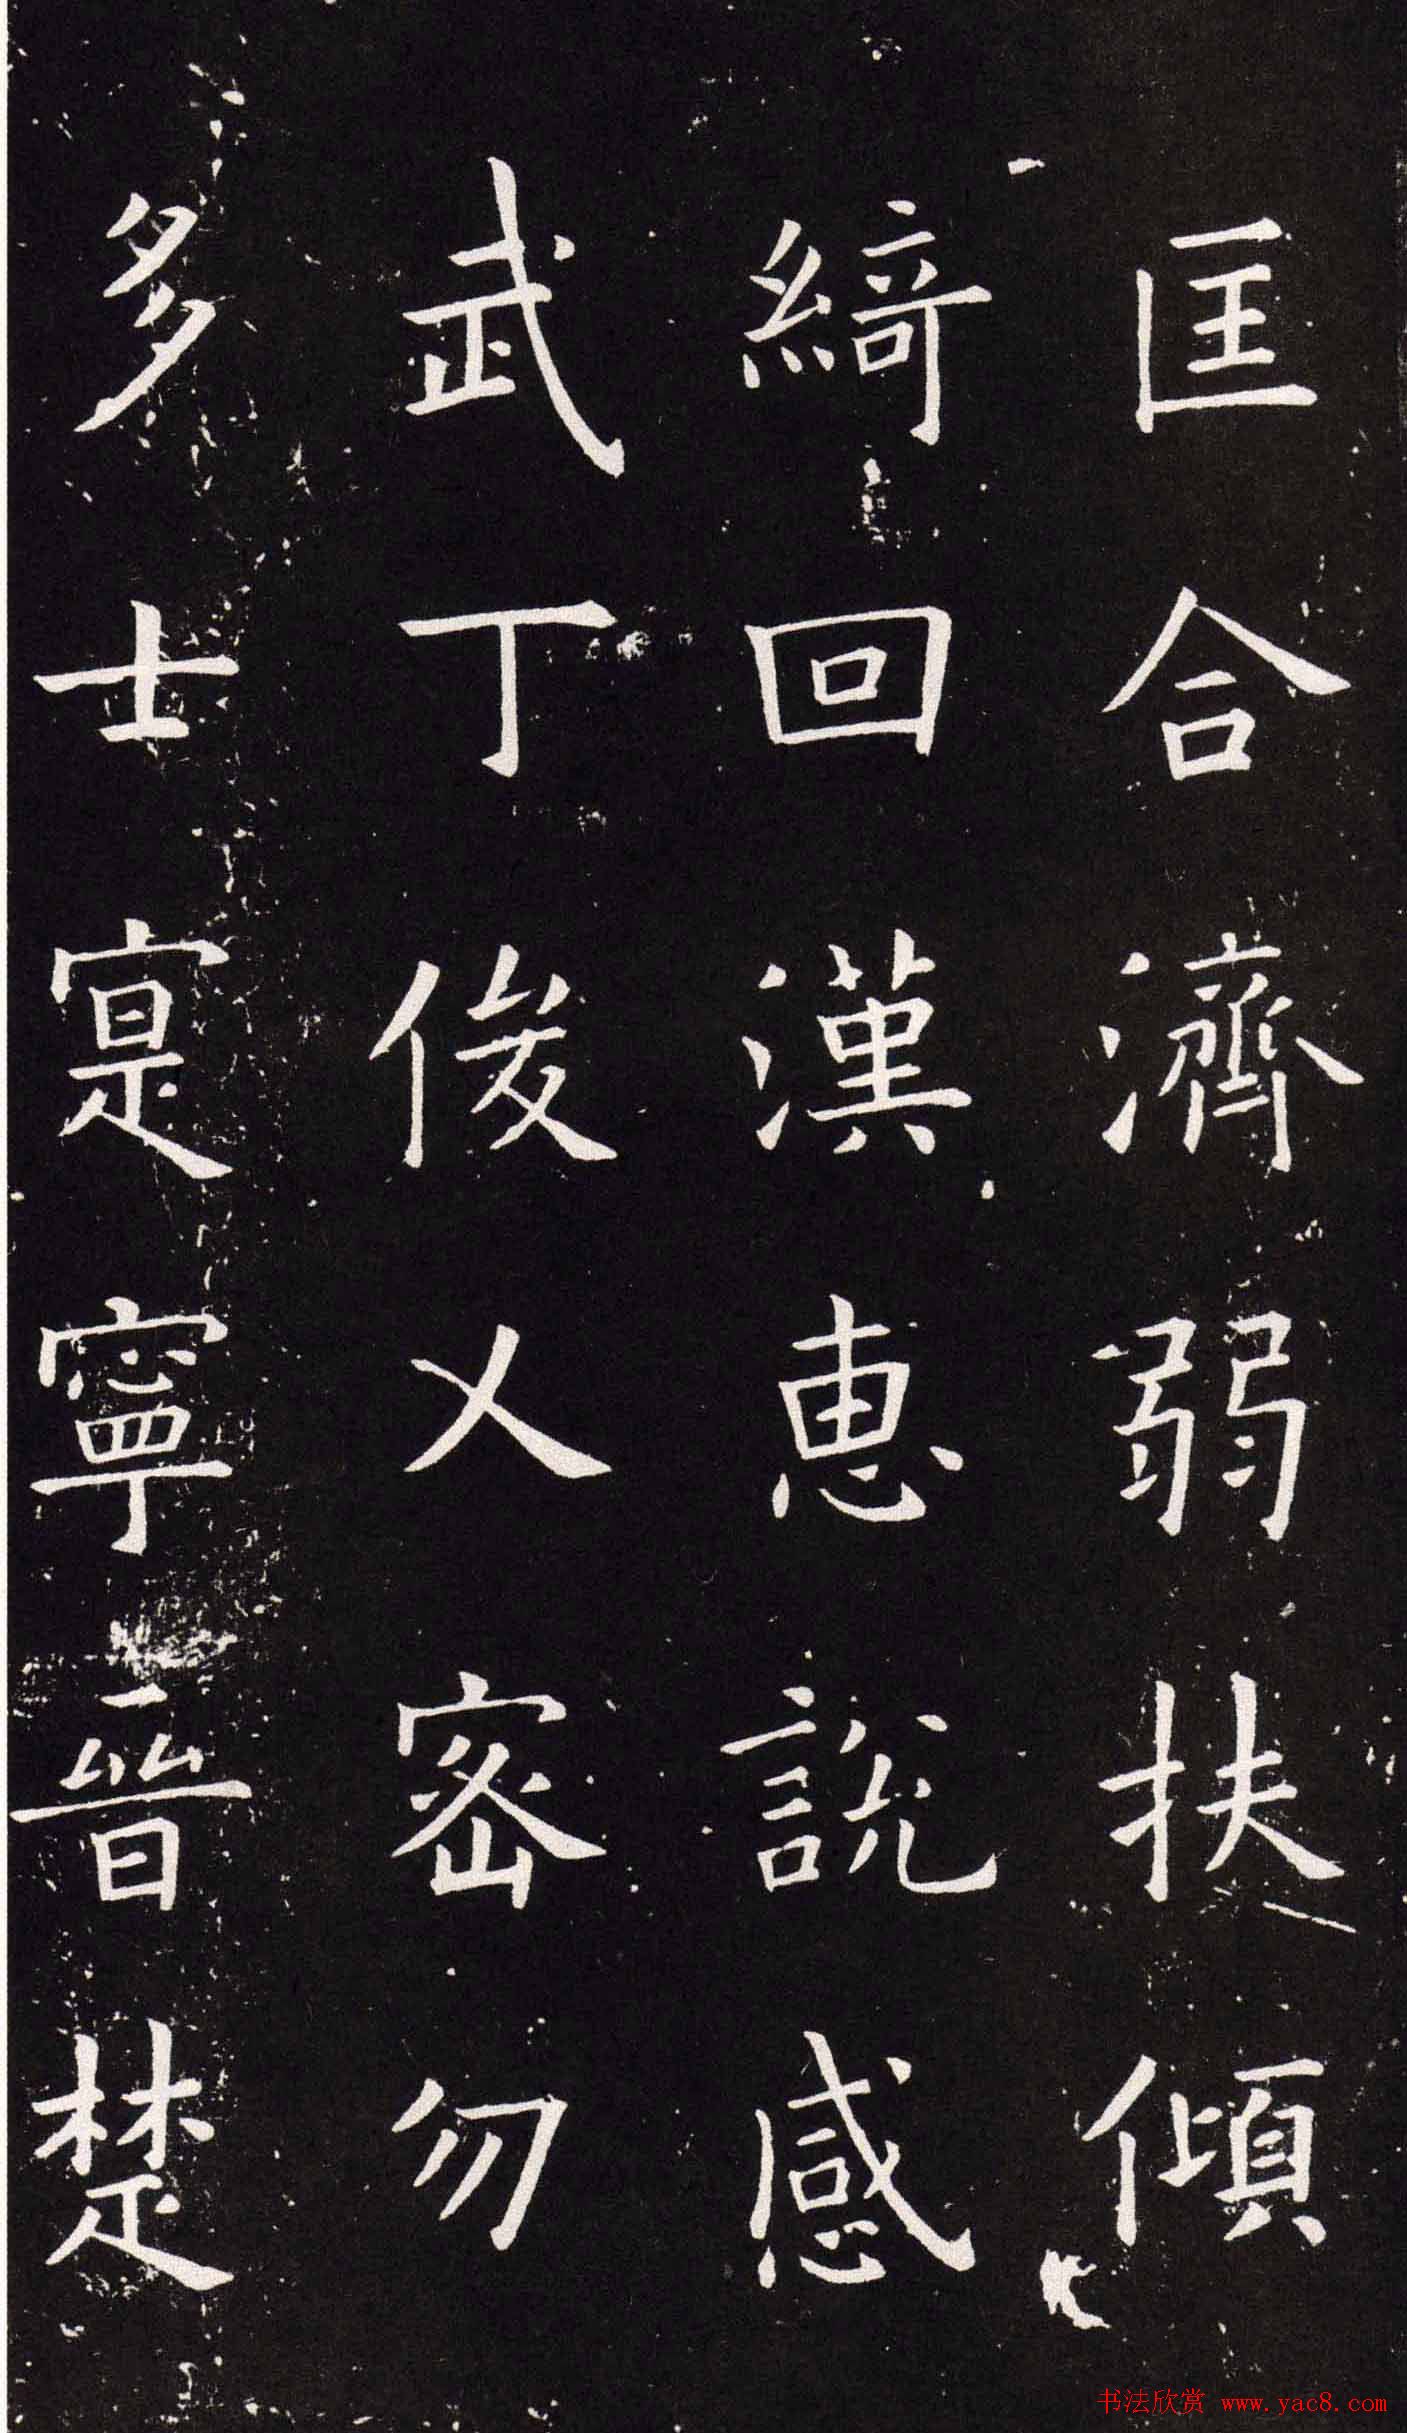 匡合濟弱扶傾
綺回漢惠說感
武丁俊乂密勿
多士寔寧晉楚
书法欣赏 www.yac8.com